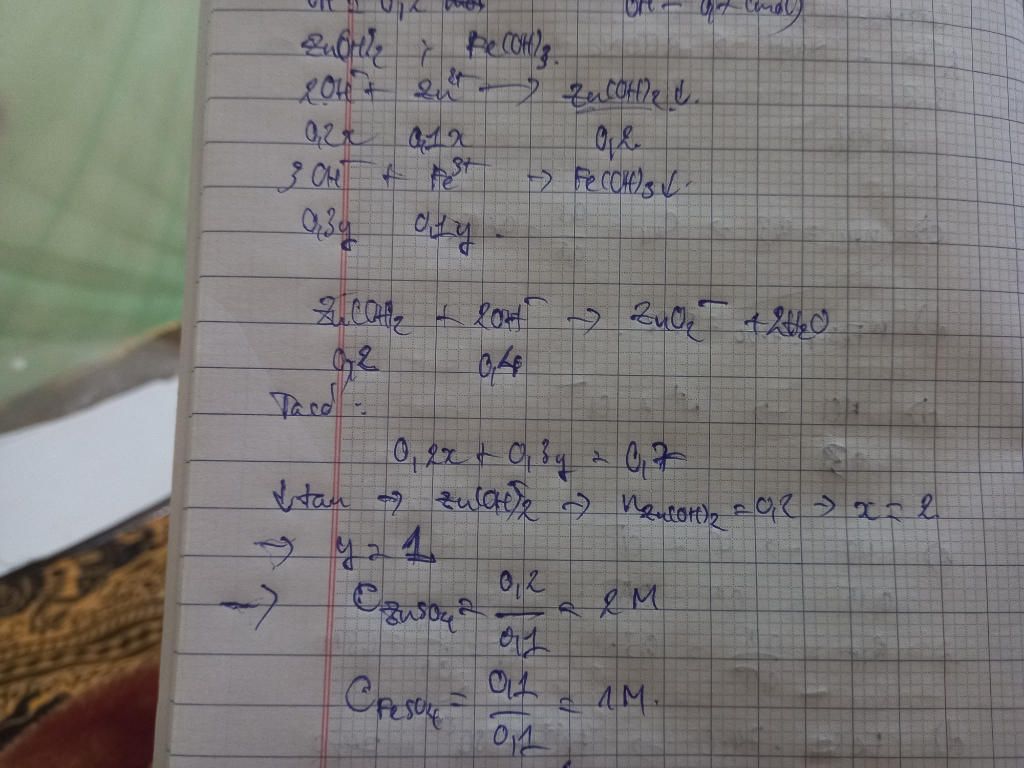 Zn(OH)2 ; Fe(OH)3.
2OH⁻ + Zn²⁺ → Zn(OH)2 ↓.
0,2x 0,1x 0,2
3OH⁻ + Fe³⁺ → Fe(OH)3 ↓.
0,3y 0,1y.
Zn(OH)2 + 2OH⁻ → ZnO2⁻ + 2H2O
0,2 0,4
Ta có :
0,2x + 0,3y = 0,7
↓ tan → Zn(OH)2 → nZn(OH)2 = 0,2 → x = 2
→ y = 1
→ CZnSO4 = 0,2/0,1 = 2M
CFeSO4 = 0,1/0,1 = 1M.